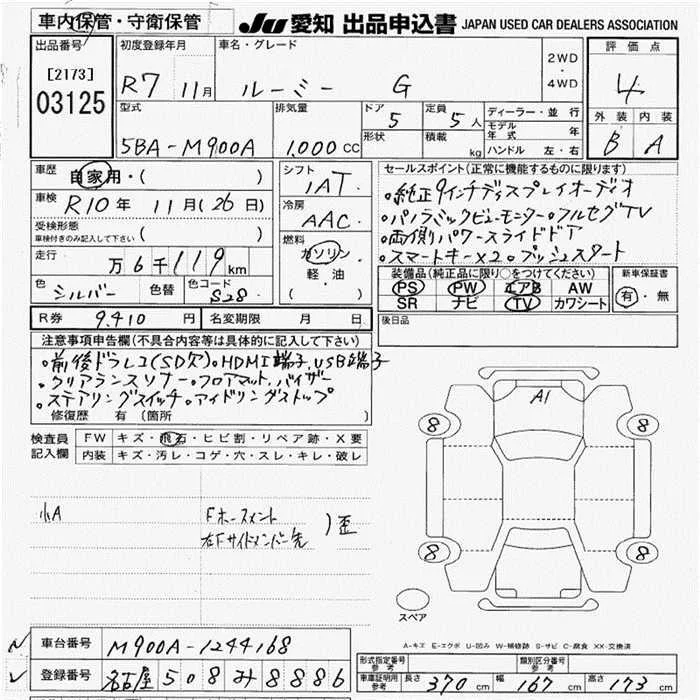 車内保管・守衛保管
JU 愛知 出品申込書 JAPAN USED CAR DEALERS ASSOCIATION
出品番号
[2173]
03125
初度登録年月
R7 11月
車名・グレード
ルーミー G
2WD
・
4WD
評価点
4
外装 内装
B A
型式
5BA-M900A
排気量
1,000 CC
ドア
5
形状
定員
5人
積載
kg
ディーラー・並行
モデル年式 年
ハンドル 左・右
車歴
自家用・( )
車検
R10年 11月(26日)
受検形態
車検付きのみ記入して下さい ( )
走行
万6千119km
色
シルバー
色替
色コード
S28
シフト
IAT
冷房
AAC
燃料
ガソリン
軽・油
( )
セールスポイント(正常に機能するものに限ります)
・純正9インチディスプレイオーディオ
・パノラミックビューモニター・フルセグTV
・両側パワースライドドア
・スマートキー×2・プッシュスタート
装備品(純正品に限り○をつけてください)
PS PW エアB AW
SR ナビ TV カワシート
新車保証書
有・無
R券 9,410円
名変期限 月 日
後日品
注意事項申告欄(不具合内容等は具体的に記入して下さい)
・前後ドラレコ(SD欠)・HDMI端子,USB端子
・クリアランスソナー・フロアマット,バイザー
・ステアリングスイッチ・アイドリングストップ
修復歴 有(箇所
検査員記入欄
FW キズ・飛石・ヒビ割・リペア跡・X要
内装 キズ・汚レ・コゲ・穴・スレ・キレ・破レ
小A
Fホースメント
右Fサイドメンバー先
)歪
A1
8 8
8 8
スペア
A-キズ E-エクボ U-凹み W-補修跡 S-サビ C-腐食 XX-交換済
車台番号 M900A-1244168
登録番号 名古屋 508 み 8886
形式指定番号 参考
類別区分番号 参考
車庫証明用 参考 長さ 370cm 幅 167cm 高さ 173cm